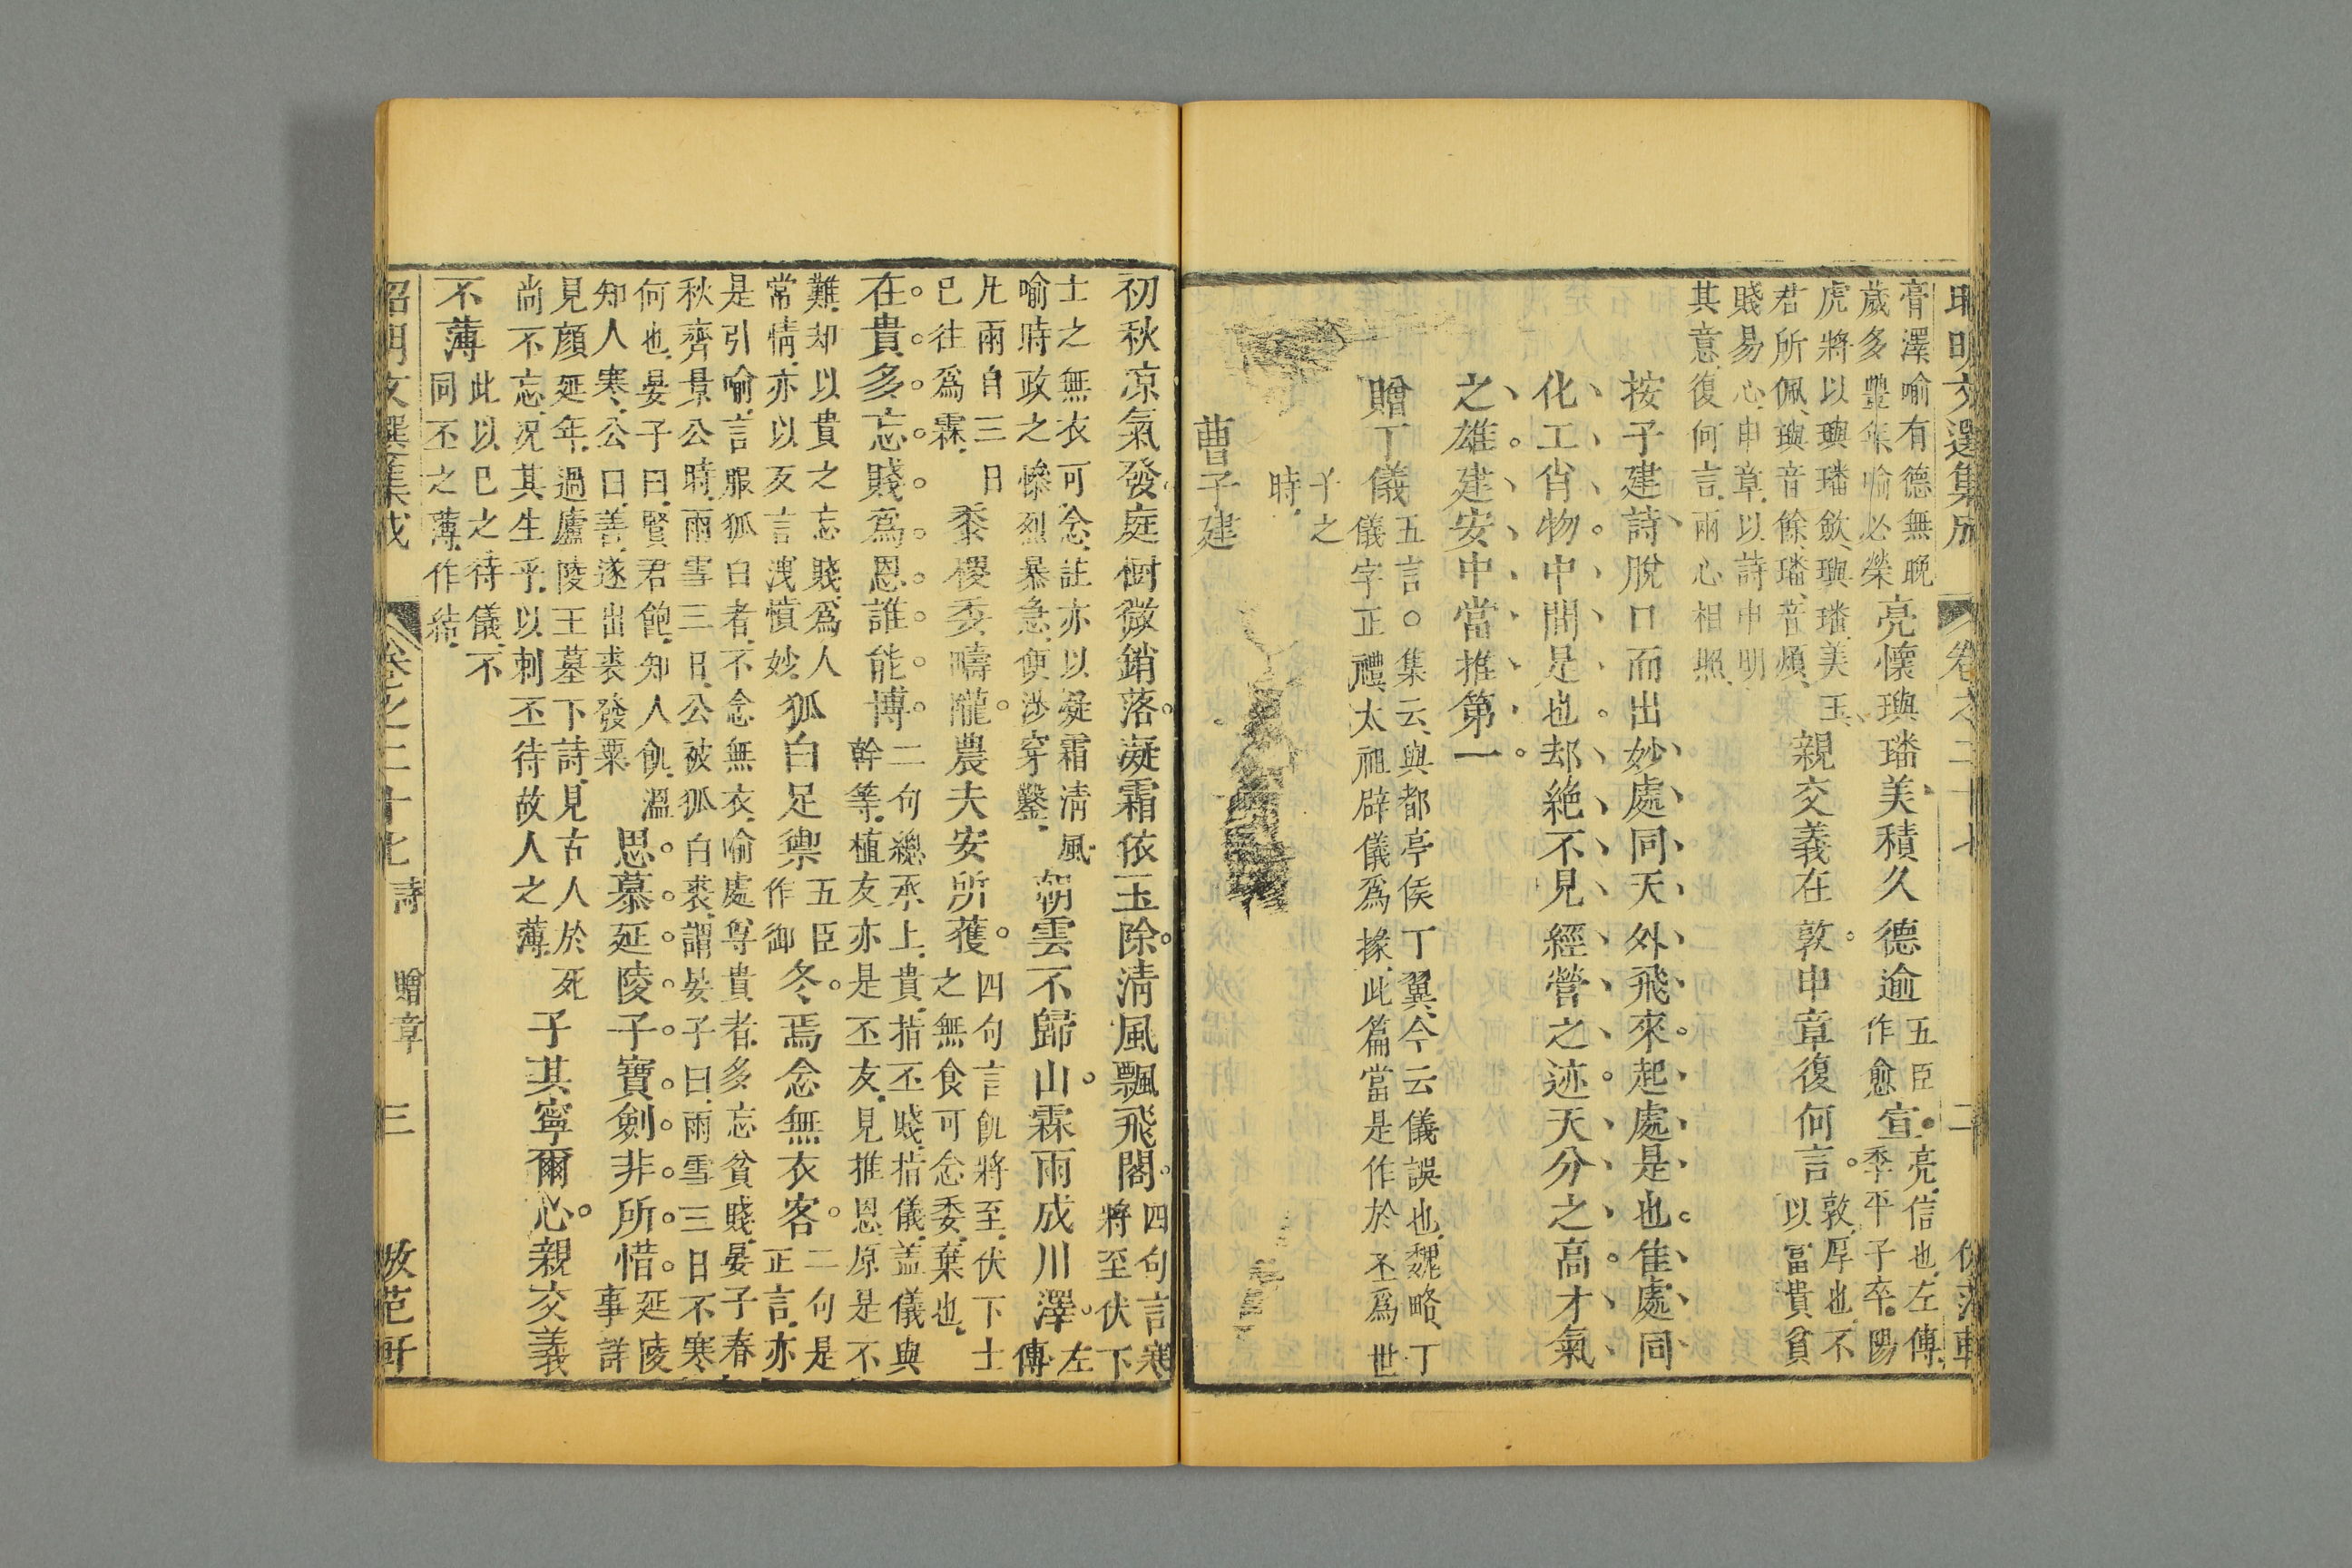 昭明文選集成 卷之二十七 二 倣范軒
膏澤喻有德無晚
歲多豐年喻必榮
亮懷璵璠美積久德逾
五臣
作愈
宣
亮信也左傳
季平子卒陽
虎將以璵璠斂璵璠美玉
君所佩璵音餘璠音煩
親交義在敦申章復何言
敦厚也不
以富貴貧
賤易心申章以詩申明
其意復何言兩心相照
按子建詩脫口而出妙處同天外飛來起處是也隹處同
化工肖物中間是也却絶不見經營之迹天分之高才氣
之雄建安中當推第一
贈丁儀
五言○集云與都亭侯丁翼今云儀誤也魏略丁
儀字正禮太祖辟儀爲掾此篇當是作於丕爲世
子之
時
曹子建
初秋凉氣發庭樹微銷落凝霜依玉除清風飄飛閣
四句言寒
將至伏下
士之無衣可念註亦以凝霜淸風
喻時政之慘烈暴急便涉穿鑿
朝雲不歸山霖雨成川澤
左
傳
凡雨自三日
已往爲霖
黍稷委疇隴農夫安所獲
四句言飢將至伏下士
之無食可念委棄也
在貴多忘賤爲恩誰能博
二句總承上貴指丕賤指儀盖儀與
幹等植友亦是丕友見推恩原是不
難却以貴之忘賤爲人
常情亦以反言洩憤妙
狐白足禦
五臣
作御
冬焉念無衣客
二句是
正言亦
是引喻言服狐白者不念無衣喻處尊貴者多忘貧賤晏子春
秋齊景公時雨雪三日公被狐白裘謂晏子曰雨雪三日不寒
何也晏子曰賢君飽知人飢溫
知人寒公曰善遂出裘發粟
思慕延陵子寶劍非所惜
延陵
事詳
見顏延年過廬陵王墓下詩見古人於死
尚不忘況其生乎以刺丕待故人之薄
子其寧爾心親交義
不薄
此以已之待儀不
同丕之薄作結
昭明文選集成 卷之二十七 詩 贈章 三 倣范軒